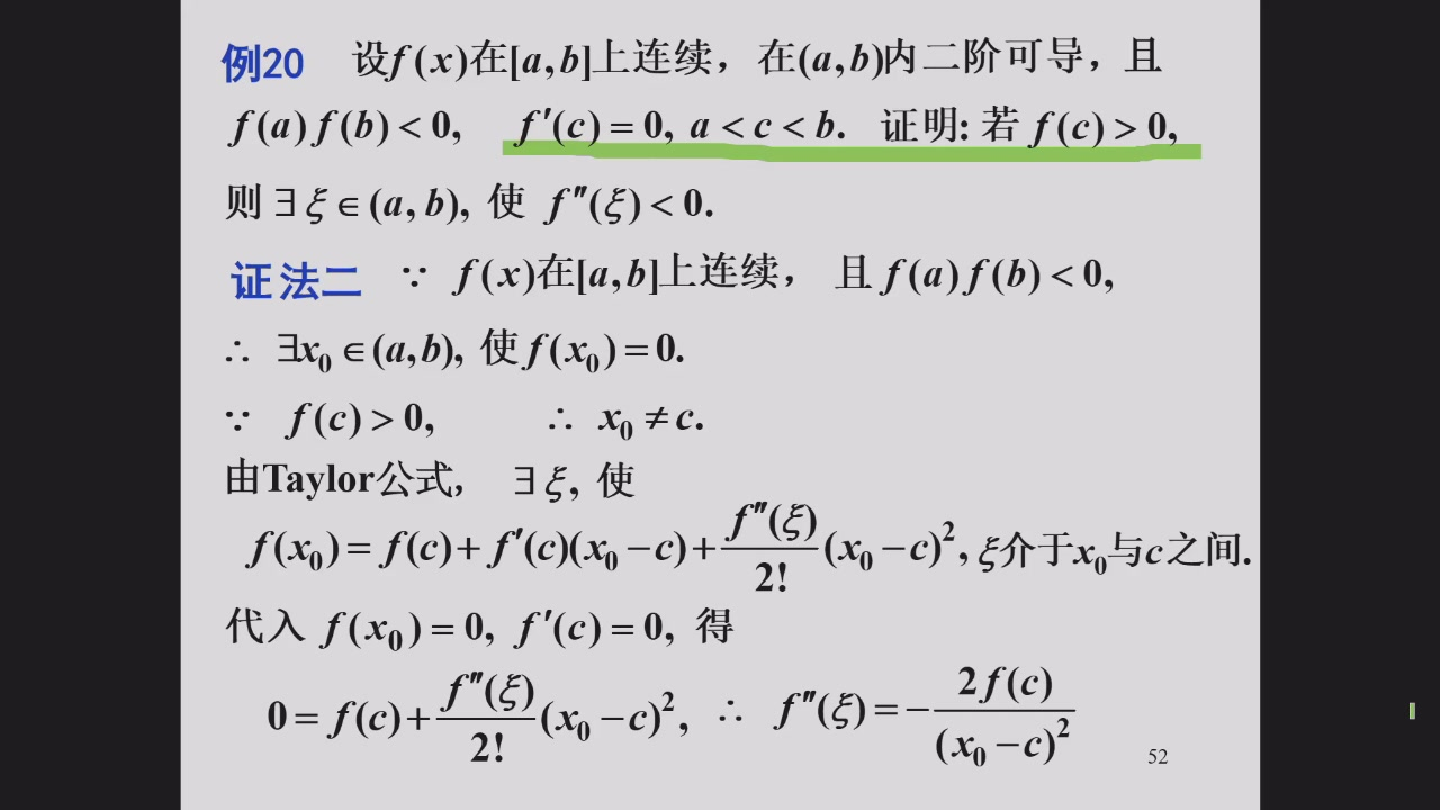 例20 设f(x)在[a,b]上连续，在(a,b)内二阶可导，且
f(a)f(b)<0, f′(c)=0, a<c<b. 证明: 若 f(c)>0,
则∃ξ∈(a,b), 使 f″(ξ)<0.
证法二 ∵ f(x)在[a,b]上连续， 且f(a)f(b)<0,
∴ ∃x₀∈(a,b), 使f(x₀)=0.
∵ f(c)>0, ∴ x₀≠c.
由Taylor公式, ∃ξ, 使
f(x₀)=f(c)+f′(c)(x₀−c)+f″(ξ)/2!(x₀−c)², ξ介于x₀与c之间.
代入 f(x₀)=0, f′(c)=0, 得
0=f(c)+f″(ξ)/2!(x₀−c)², ∴ f″(ξ)=−2f(c)/(x₀−c)²
52